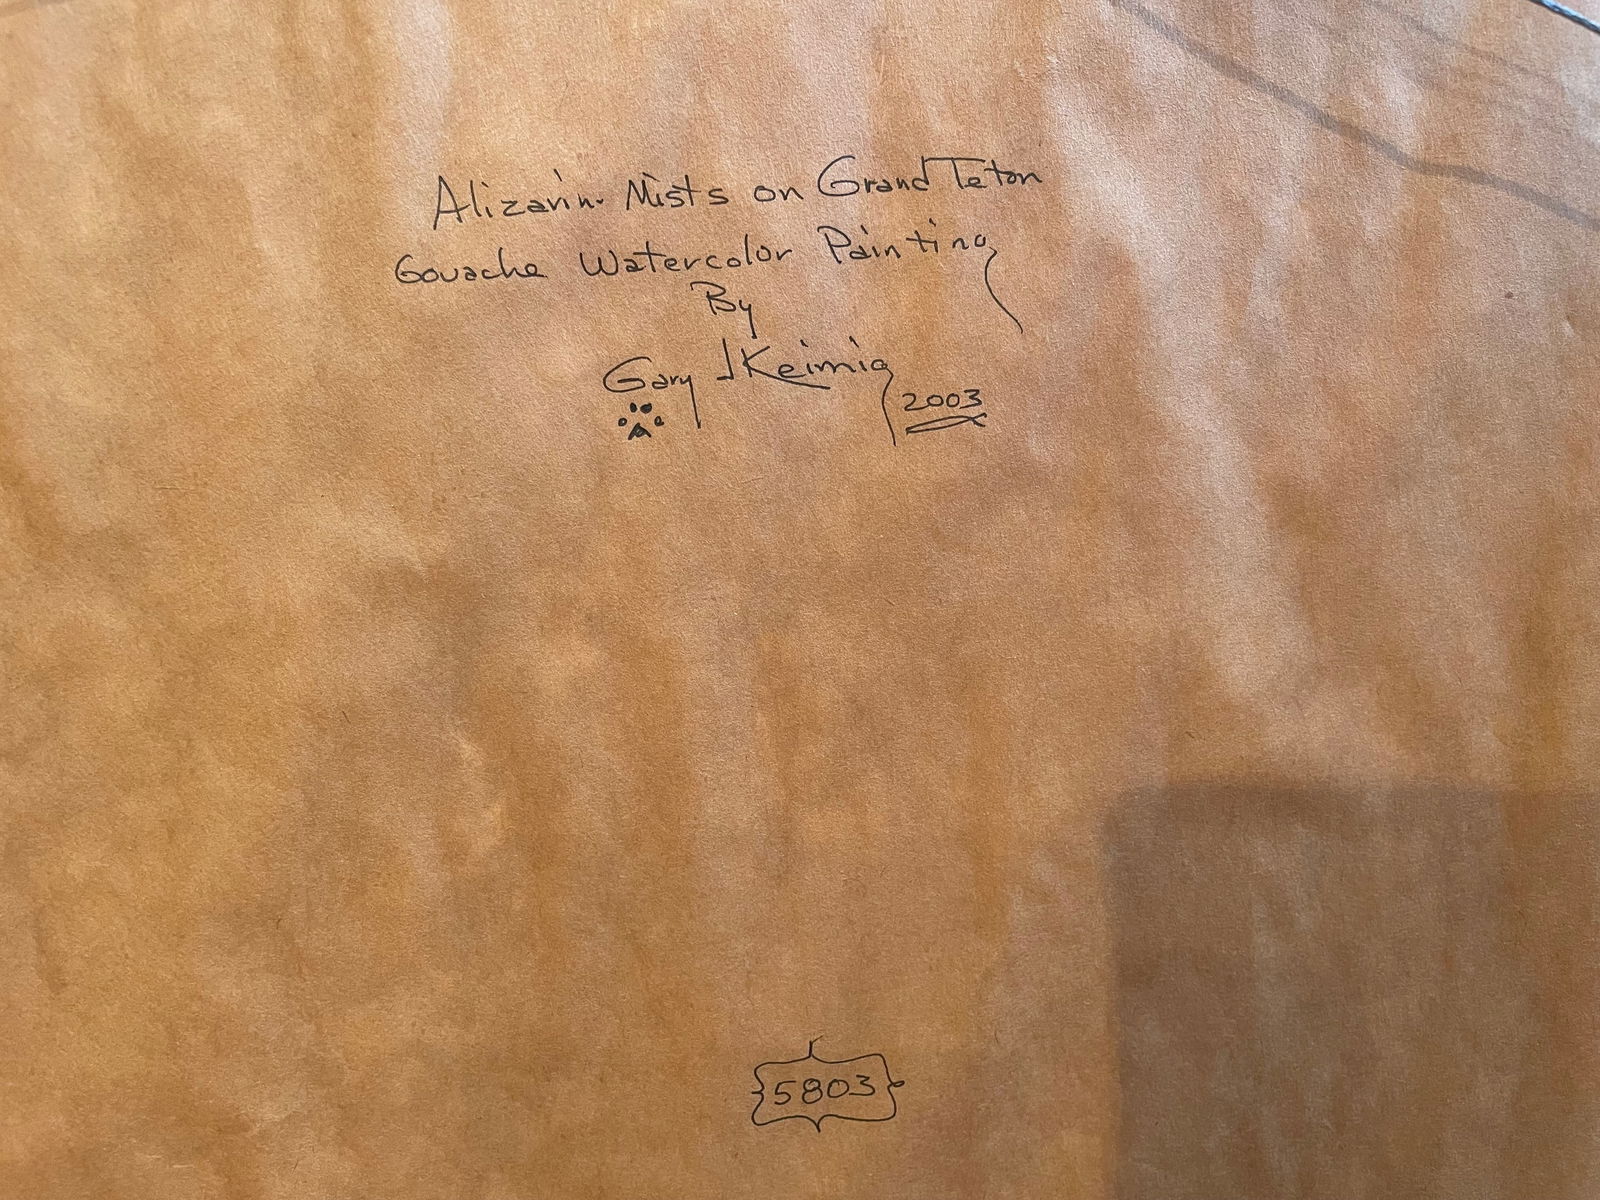 Alizarin Mists on Grand Teton
Gouache Watercolor Painting
By
Gary J Keimig
2003
5803